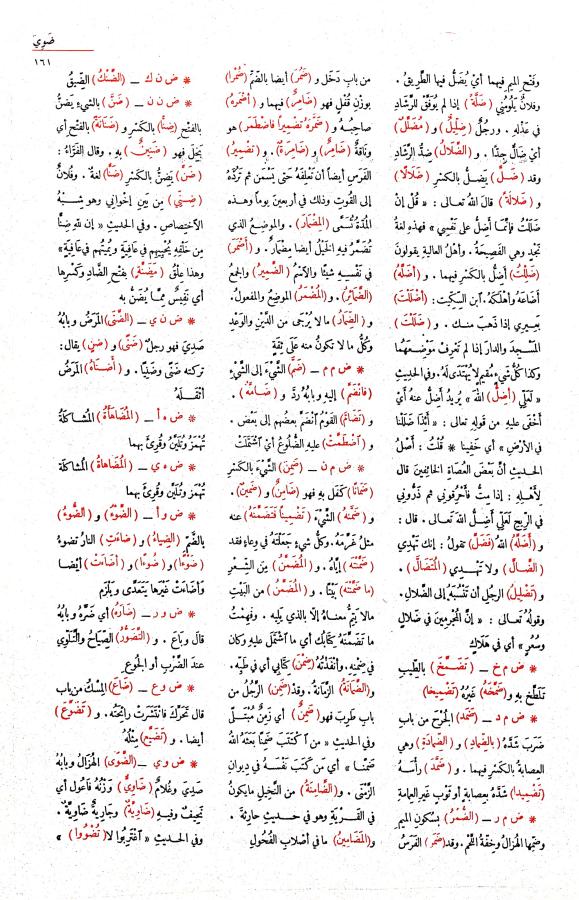 ضَوِيَ
١٦١
وفَتْح المِيمِ فيهما أيْ يُضَلُّ فيها الطَّرِيقُ .
وفلانٌ يَلُومُنِي (ضَلَّةً) إذا لم يُوَفَّقْ لِلرَّشَادِ
فى عَذْلِه . ورجُلٌ (ضِلِّيلٌ) و (مُضَلَّلٌ)
أىْ ضَالٌّ جِدًّا . و (الضَّلَالُ) ضِدُّ الرَّشَادِ
وقد (ضَلَّ) يَضِلُّ بالكَسْرِ (ضَلَالًا)
و (ضَلَالَةً) قالَ اللهُ تعالى : « قُلْ إنْ
ضَلَلْتُ فإنَّما أَضِلُّ على نَفْسِي » فهذه لغةُ
نَجْدٍ وهى الفَصِيحةُ . وأهْلُ العاليةِ يقولونَ
(ضَلِلْتُ) أَضَلُّ بالكَسْرِ فيهما . و (أَضَلَّهُ)
أضَاعَهُ وأَهْلَكَهُ . ابنُ السِّكِّيتِ : (أَضْلَلْتُ)
بَعِيرِي إذا ذَهَبَ منك . و (ضَلَلْتُ)
المَسْجِدَ والدارَ إذا لم تَعْرِفْ مَوْضِعَهُما
وكذا كُلُّ شىءٍ مُقِيمٍ لا يُهْتَدَى لَهُ . وفى الحديثِ
« لَعَلِّى (أَضِلُّ) اللهَ » يُرِيدُ أَضِلُّ عنهُ أىْ
أَخْفَى عليه من قولِه تعالى : « أَئِذَا ضَلَلْنَا
فى الأرْضِ » أى خَفِينا * قُلْتُ : أصْلُ
الحديثِ أنّ بَعْضَ العُصاةِ الخائِفِينَ قال
لِأَهْلِهِ : إذا مِتُّ فأَحْرِقُونِى ثم ذَرُّونِى
فى الرِّيحِ لَعَلِّى أَضِلُّ اللهَ تعالى . قال :
و (أَضَلَّهُ) اللهُ (فَضَلَّ) تقولُ : إنك تَهْدِى
(الضَّالَّ) ولا تَهْدِى (المُتَضَالَّ) .
و (تَضْلِيلُ) الرجُلِ أن تَنْسُبَهُ إلى الضَّلالِ .
وقولُه تعالى : « إنَّ المُجْرِمِينَ فى ضَلَالٍ
وسُعُرٍ » أى فى هَلَاكٍ
* ض م خ — (تَضَمَّخَ) بالطِّيبِ
تَلَطَّخَ بِهِ و (ضَمَّخَهُ) غيْرُهُ (تَضْمِيخا)
* ض م د — (ضَمَدَ) الجُرْحَ من باب
ضَرَبَ شَدَّهُ (بالضِّمادِ) و (الضِّمَادَةِ) وهى
العِصابةُ بالكَسْرِ فيهما . و (ضَمَّدَ) رأْسَهُ
(تَضْمِيدا) شَدَّهُ بعِصابةٍ أو ثَوْبٍ غيرِ العِمامةِ
* ض م ر — (الضُّمْرُ) بسُكونِ المِيمِ
وضَمِّها الهُزَالُ وخِفَّةُ اللَّحْمِ . وقد (ضَمَرَ) الفَرَسُ
من باب دَخَلَ و (ضَمُرَ) أيضا بالضَّمِّ (ضُمْرًا)
بوَزْنِ قُفْلٍ فهو (ضَامِرٌ) فيهما و (أَضْمَرَهُ)
صاحِبُهُ و (ضَمَّرَهُ تَضْمِيراً فاضْطَمَرَ) هو
وناقةٌ (ضَامِرٌ) و (ضَامِرَةٌ) . و (تَضْمِيرُ)
الفَرَسِ أيضاً أن تَعْلِفَهُ حتى يَسْمَنَ ثم تَرُدَّهُ
إلى القُوتِ وذلك فى أربعينَ يوما وهذه
المُدَّةُ تُسَمَّى (المِضْمَارَ) . والموضِعُ الذى
تُضَمَّرُ فيه الخَيْلُ أيضا مِضْمَارٌ . و (أَضْمَرَ)
فى نَفْسِهِ شيْئًا والاسمُ (الضَّمِيرُ) والجمعُ
(الضَّمَائِرُ) . و (المُضْمَرُ) الموضِعُ والمفعولُ .
و (الضِّمَارُ) ما لا يُرْجَى من الدَّيْنِ والوَعْدِ
وكُلُّ ما لا تكونُ منه على ثِقَةٍ
* ض م م — (ضَمَّ) الشَّىْءَ إلى الشَّىْءِ
(فانْضَمَّ) إليه وبابُهُ رَدَّ و (ضَامَّهُ) .
و (تَضَامَّ) القومُ انْضَمَّ بعضُهم إلى بعْضٍ .
و (اضْطَمَّتْ) عليه الضُّلوعُ أىْ اشْتَمَلَتْ
* ض م ن — (ضَمِنَ) الشَّىْءَ بالكَسْرِ
(ضَمَانًا) كَفَلَ بِهِ فهو (ضَامِنٌ) و (ضَمِينٌ) .
و (ضَمَّنَهُ) الشَّىْءَ (تَضْمِيناً فَتَضَمَّنَهُ) عنه
مثلُ غَرَّمَهُ . وكُلُّ شىءٍ جَعَلْتَهُ فى وِعاءٍ فقد
(ضَمَّنْتَه) إيَّاهُ . و (المُضَمَّنُ) من الشِّعْرِ
(ما ضَمَّنْتَه) بَيْتًا . و (المُضَمَّنُ) من البَيْتِ
مالا يَتِمُّ معناهُ إلا بالذى يليه . وفَهِمْتُ
ما تَضَمَّنَهُ كتابُك أى ما اشْتَمَلَ عليه وكان
فى ضِمْنِهِ . وأنْفَذْتُهُ (ضِمْنَ) كِتَابِى أى فى طَيِّهِ .
و (الضَّمَانَةُ) الزَّمَانَةُ . وقد (ضَمِنَ) الرَّجُلُ من
باب طَرِبَ فهو (ضَمِنٌ) أى زَمِنٌ مُبْتَلًى
وفى الحديثِ « من اكْتَتَبَ ضَمِنًا بَعَثَهُ اللهُ
ضَمِنًا » أى من كَتَبَ نَفْسَهُ فى دِيوانِ
الزَّمْنَى . و (الضَّامِنَةُ) من النَّخِيلِ مايكونُ
فى القَرْيةِ وهو فى حديثِ حارثةَ .
و (المَضَامِينُ) ما فى أصْلابِ الفُحُولِ
* ض ن ك — (الضَّنْكُ) الضِّيقُ
* ض ن ن — (ضَنَّ) بالشىءِ يَضَنُّ
بالفتحِ (ضِنًّا) بالكَسْرِ و (ضَنَانَةً) بالفتحِ أى
بَخِلَ فهو (ضَنِينٌ) بِهِ . وقال الفَرَّاءُ :
(ضَنَّ) يَضِنُّ بالكَسْرِ (ضَنًّا) لغةٌ . وفُلَانٌ
(ضِنِّى) مِن بَيْنِ إخْوانى وهو شِبْهُ
الاخْتِصاصِ . وفى الحديثِ « إن للهِ ضِنًّا
مِن خَلْقِه يُحْيِيهِم فى عافِيةٍ ويُمِيتُهم فى عافِيةٍ »
وهذا عِلْقُ (مَضِنَّةٍ) بفتحِ الضَّادِ وكَسْرِها
أى نَفِيسٌ مِمَّا يُضَنُّ به
* ض ن ى — (الضَّنَى) المَرَضُ وبابُهُ
صَدِىَ فهو رجلٌ (ضَنًى) و (ضَنٍ) يقال :
تركته ضَنًى وضَنِيًّا . و (أَضْنَاهُ) المَرَضُ
أثْقَلَهُ
* ض ه أ — (المُضَاهَأَةُ) المُشَاكَلَةُ
تُهْمَزُ وتُلَيَّنُ وقُرِئَ بهما
* ض ه ى — (المُضَاهَاةُ) المُشَاكَلَةُ
تُهْمَزُ وتُلَيَّنُ وقُرِئَ بهما
* ض و أ — (الضَّوْءُ) و (الضُّوءُ)
بالضَّمِّ (الضِّيَاءُ) و (ضَاءَتِ) النارُ تضوءُ
(ضَوْءًا) و (ضُوءًا) و (أَضَاءَتْ) أيضا
وأضَاءَتْ غَيْرَها يَتَعَدَّى ويَلْزَم
* ض و ر — (ضَارَهُ) أى ضَرَّهُ وبابُهُ
قالَ وبَاعَ . و (التَّضَوُّرُ) الصِّيَاحُ والتَّلَوِّى
عندَ الضَّرْبِ أو الجُوعِ
* ض و ع — (ضَاعَ) المِسْكُ من باب
قال تَحَرَّكَ فانْتَشَرَتْ رائِحَتُهُ . و (تَضَوَّعَ)
أيضا . و (تَضَيَّعَ) مِثْلُهُ
* ض و ى — (الضَّوَى) الهُزَالُ وبابُهُ
صَدِىَ وغُلامٌ (ضَاوِىٌّ) وَزْنُهُ فَاعُولٌ أى
نَحِيفٌ وفيهِ (ضَاوِيَّةٌ) وجارِيةٌ ضَاوِيَّةٌ .
وفى الحديثِ « اغْتَرِبُوا لا (تُضْوُوا) »